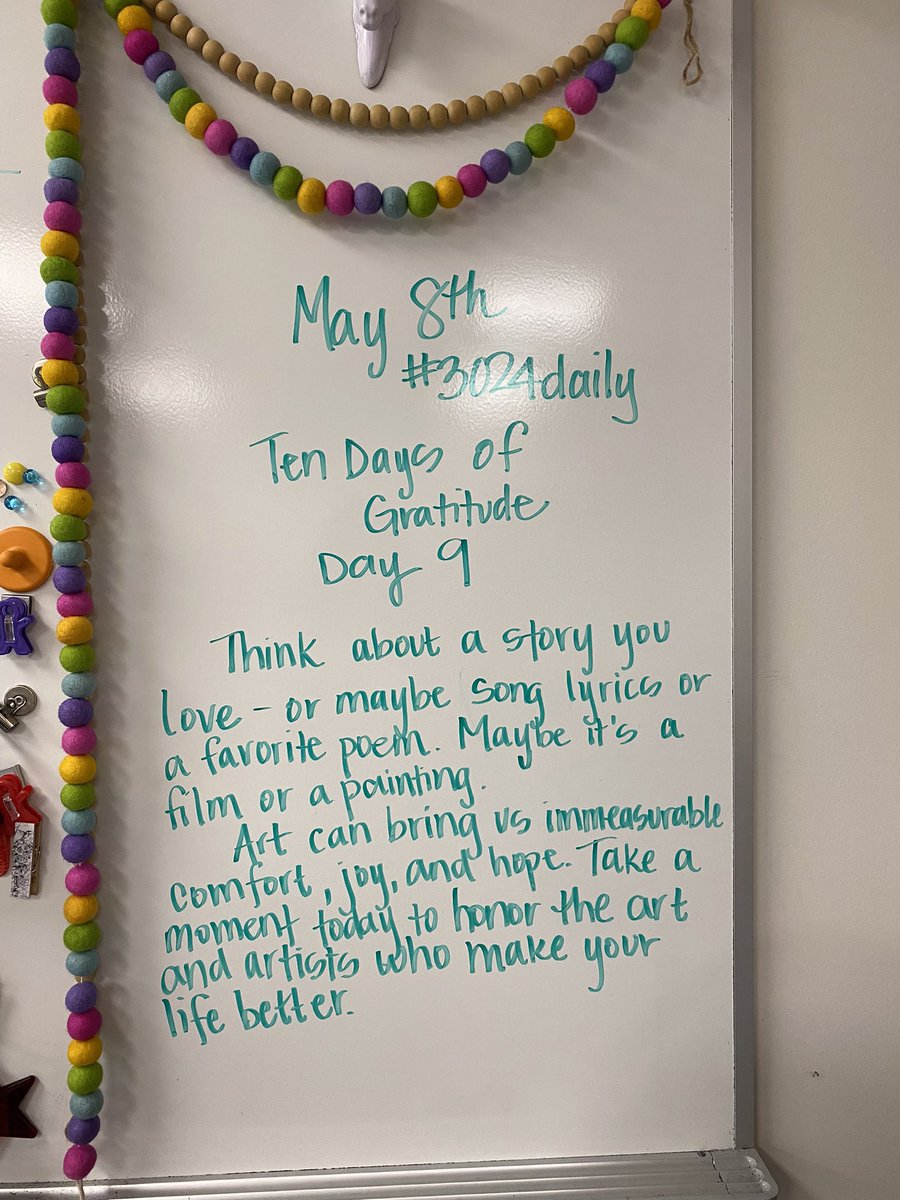 May 8th
#3024daily
Ten Days of
Gratitude
Day 9
Think about a story you
love - or maybe song lyrics or
a favorite poem. Maybe it's a
film or a painting.
Art can bring us immeasurable
comfort, joy, and hope. Take a
moment today to honor the art
and artists who make your
life better.